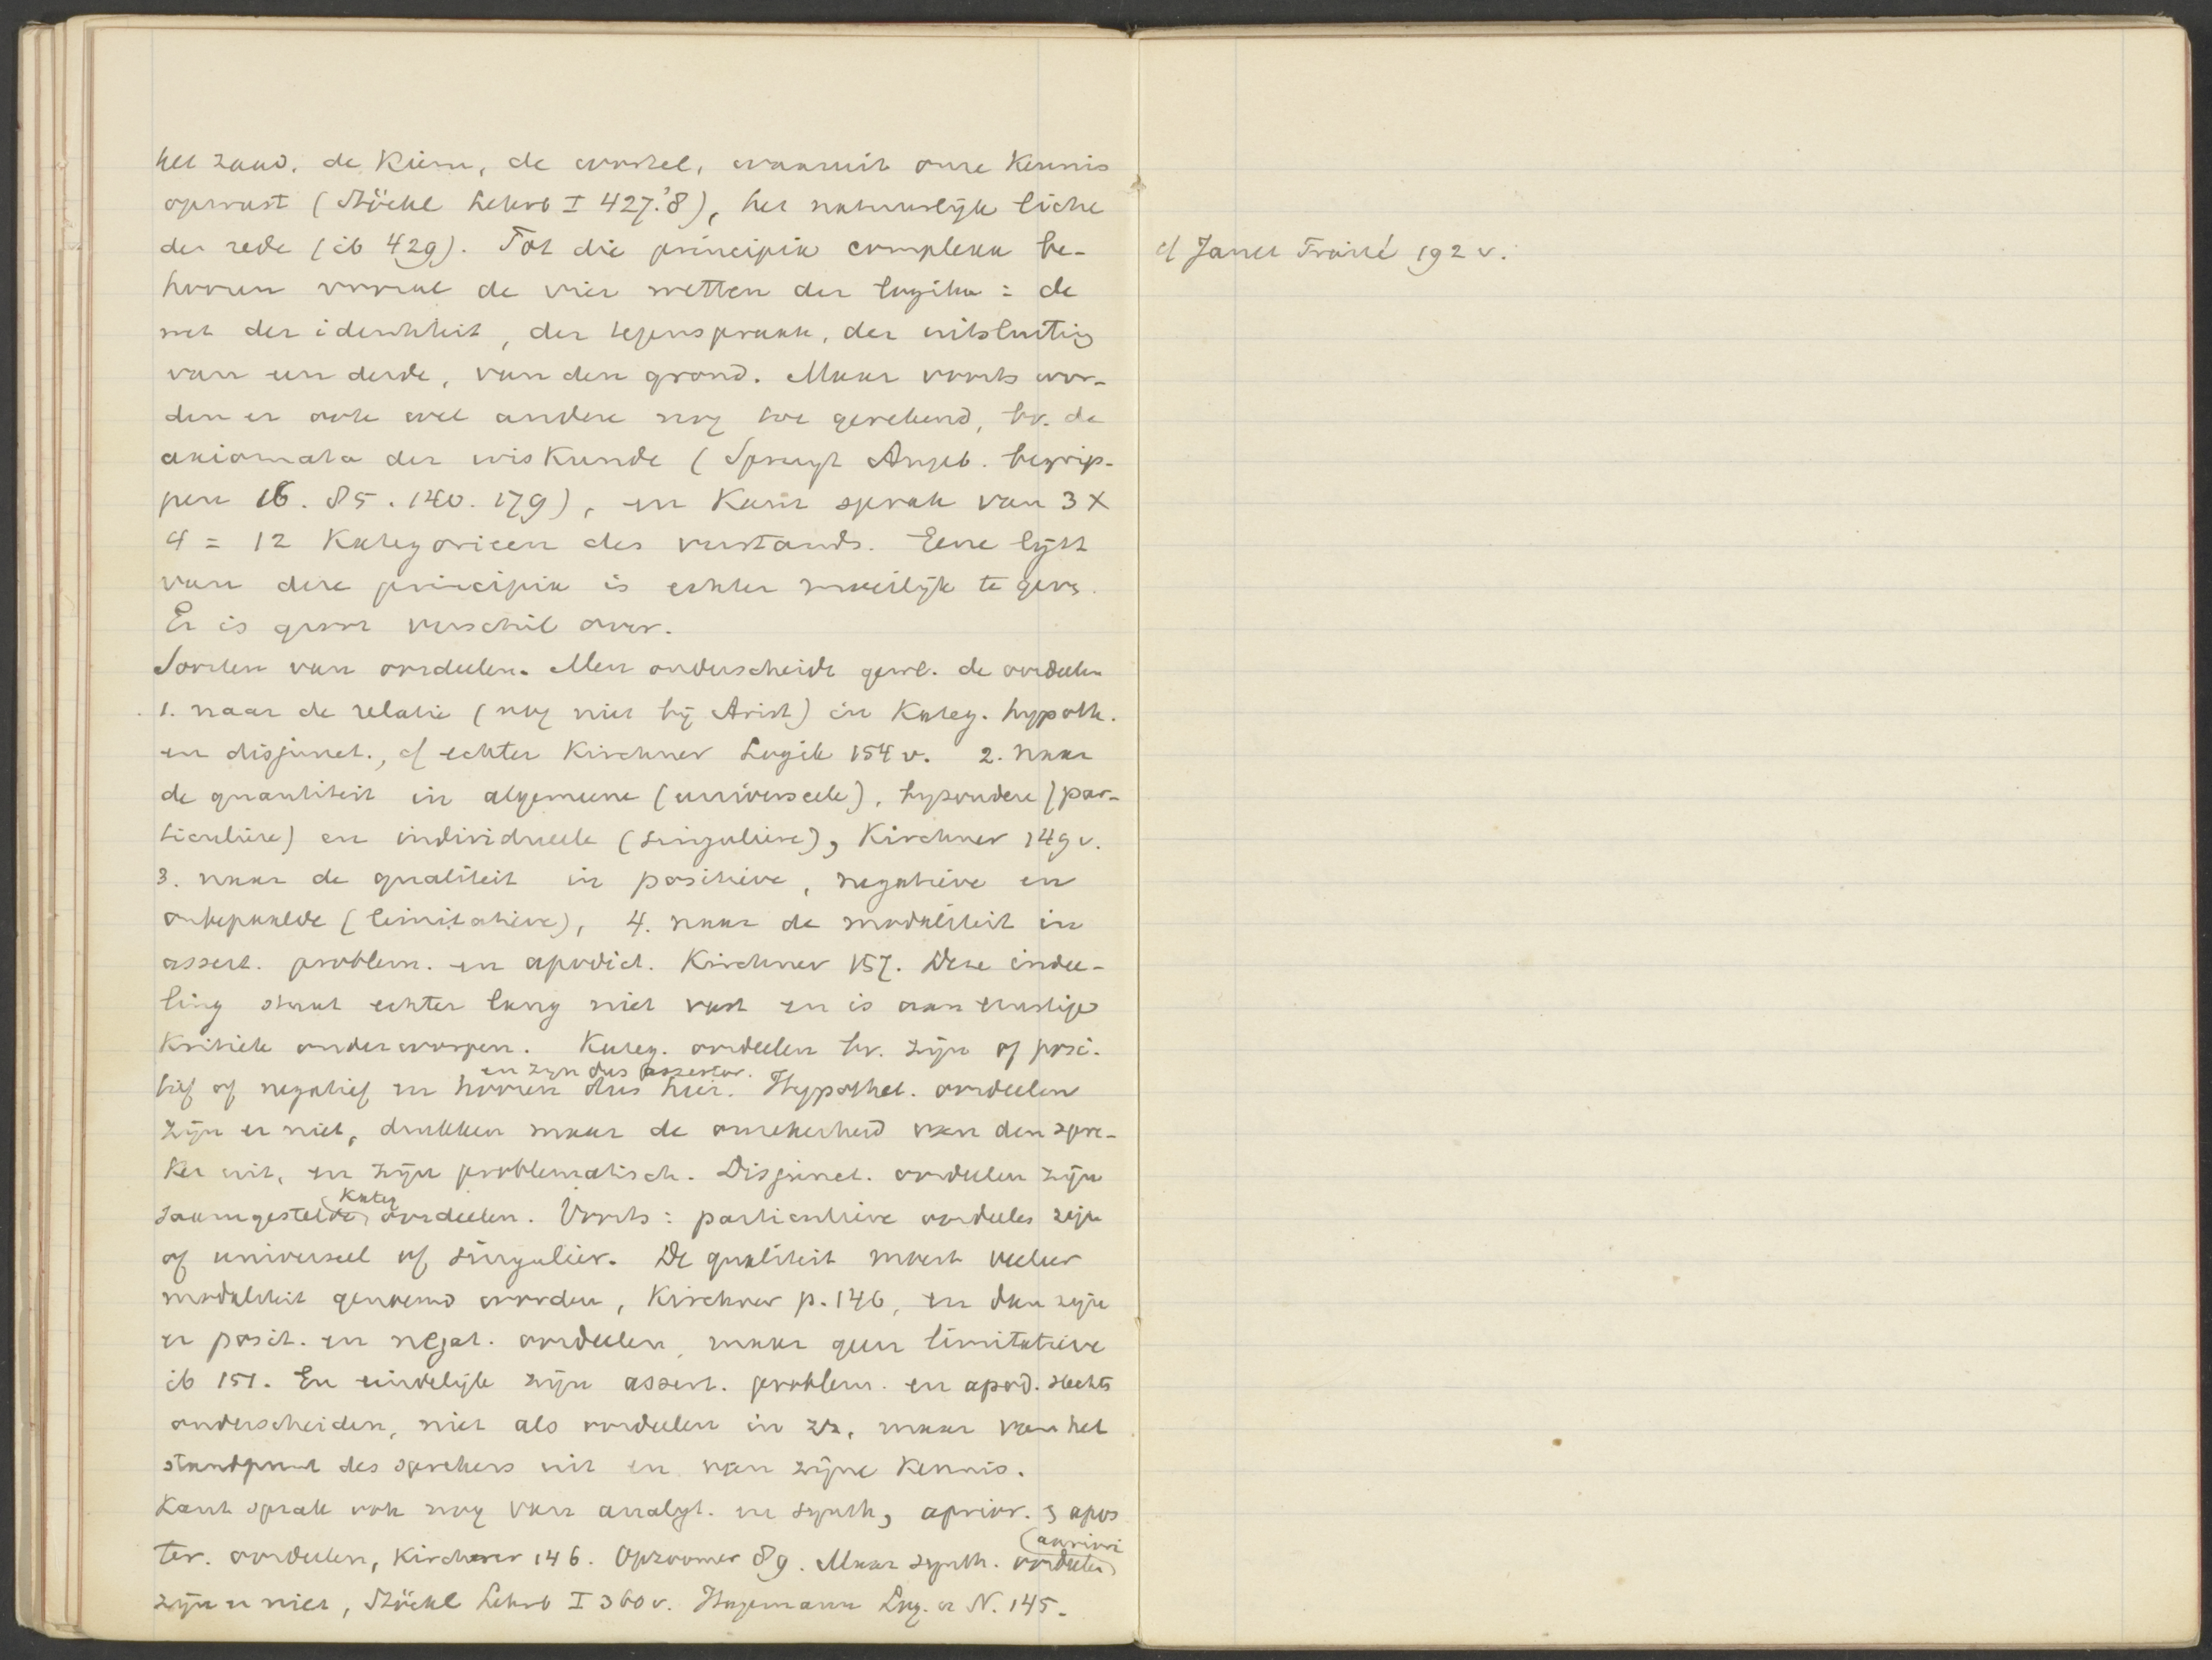 het zaad, de Kiem, de wortel, waaruit onze Kennis
opwast (Stöckl Lehrb I 427.'8), het natuurlijk licht
der rede (ib 429). Tot die principia complexa be-
hooren vooral de vier wetten der logika: de
wet der identiteit, der tegenspraak, der uitsluiting
van een derde, van den grond. Maar voorts wor-
den er ook wel andere nog toe gerekend, bv. de
axiomata der wiskunde (Spruyt Angeb. begrip-
pen 16. 85. 140. 179), en Kant sprak van 3 x
4 = 12 Kategorieen des verstands. Eene lijst
van deze principia is echter moeilijk te geven.
Er is groot verschil over.
Soorten van oordeelen. Men onderscheidt gewl. de oordeelen
1. naar de relatie (nog niet bij Arist) in Kateg. hypoth.
en disjunct., cf echter Kirchner Logik 154 v. 2. naar
de quantiteit in algemeene (universeele), byzondere (par-
ticuliere) en individueele (singuliere), Kirchner 149 v.
3. naar de qualiteit in positieve, negatieve en
onbepaalde (limitatieve), 4. naar de modaliteit in
assert. problem. en apodict. Kirchner 157. Deze indee-
ling staat echter lang niet vast en is aan ernstige
Kritiek onderworpen. Kateg. oordeelen bv. zijn of posi-
en zyn dus assertor.
tief of negatief en hooren dus hier. Hypothet. oordeelen
zijn er niet, drukken maar de onzekerheid van den spre-
ker uit, en zijn problematisch. Disjunct. oordeelen zijn
Kateg
saamgestelde oordeelen. Voorts: particuliere oordeelen zijn
of universeel of singulier. De qualiteit moest veeleer
modaliteit genoemd worden, Kirchner p. 146, en dan zijn
er posit. en negat. oordeelen, maar geen limitatieve
ib 151. En eindelijk zijn assert. problem. en apod. slechts
onderscheiden, niet als oordeelen in zz, maar van het
standpunt des sprekers uit en van zijne Kennis.
Kant sprak ook nog van analyt. en synth, aprior. & apos
apriori
ter. oordeelen, Kirchner 146. Opzoomer 89. Maar synth. oordeelen
zijn er niet, Stöckl Lehrb I 360 v. Hagemann Log. u N. 145.
cf Janet Traité 192 v.